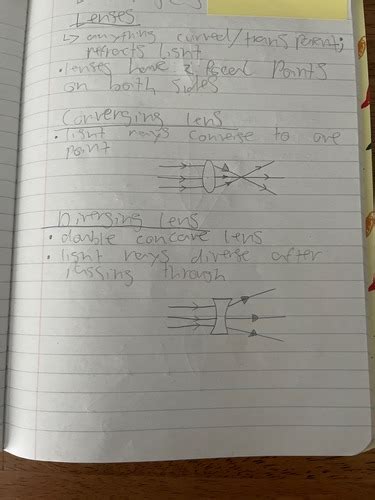 Lenses
↳ anything curved/transparent;
refracts light
• lenses have 2 focal points
on both sides
Converging lens
• light rays converge to one
point
Diverging lens
• double concave lens
• light rays diverge after
passing through